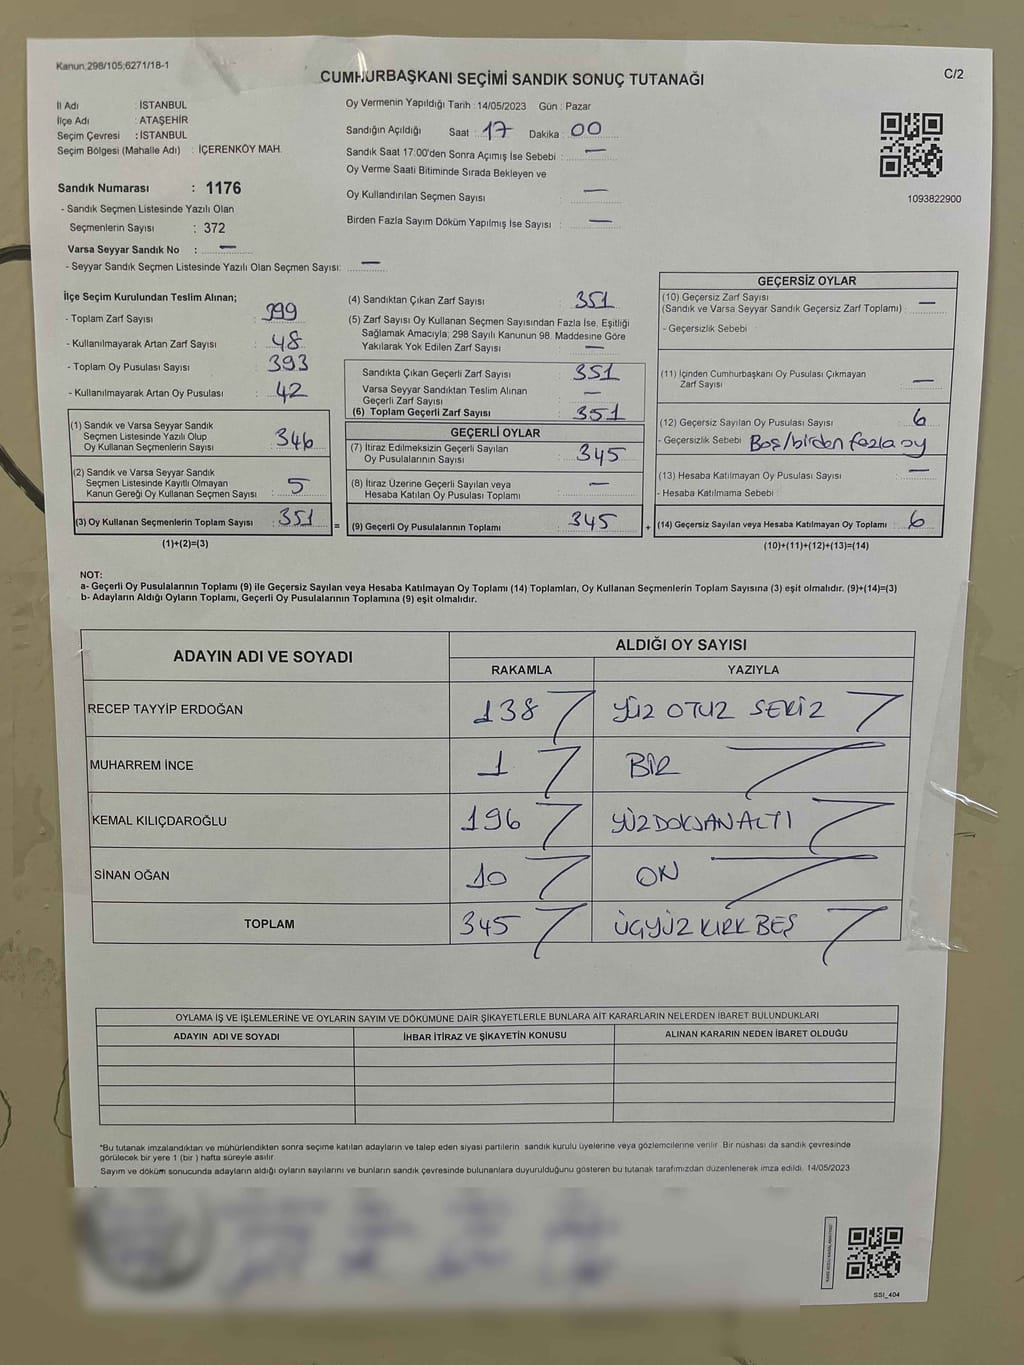 Kanun:298/105;6271/18-1
C/2
CUMHURBAŞKANI SEÇİMİ SANDIK SONUÇ TUTANAĞI
İl Adı : İSTANBUL
İlçe Adı : ATAŞEHİR
Seçim Çevresi : İSTANBUL
Seçim Bölgesi (Mahalle Adı) : İÇERENKÖY MAH.
Oy Vermenin Yapıldığı Tarih : 14/05/2023 Gün : Pazar
Sandığın Açıldığı Saat : 17 Dakika : 00
Sandık Saat 17:00'den Sonra Açımış İse Sebebi : —
Oy Verme Saati Bitiminde Sırada Bekleyen ve
Oy Kullandırılan Seçmen Sayısı : —
Birden Fazla Sayım Döküm Yapılmış İse Sayısı : —
1093822900
Sandık Numarası : 1176
- Sandık Seçmen Listesinde Yazılı Olan
Seçmenlerin Sayısı : 372
Varsa Seyyar Sandık No : —
- Seyyar Sandık Seçmen Listesinde Yazılı Olan Seçmen Sayısı: —
İlçe Seçim Kurulundan Teslim Alınan;
- Toplam Zarf Sayısı : 399
- Kullanılmayarak Artan Zarf Sayısı : 48
- Toplam Oy Pusulası Sayısı : 393
- Kullanılmayarak Artan Oy Pusulası : 42
(1) Sandık ve Varsa Seyyar Sandık
Seçmen Listesinde Yazılı Olup
Oy Kullanan Seçmenlerin Sayısı : 346
(2) Sandık ve Varsa Seyyar Sandık
Seçmen Listesinde Kayıtlı Olmayan
Kanun Gereği Oy Kullanan Seçmen Sayısı : 5
(3) Oy Kullanan Seçmenlerin Toplam Sayısı : 351
(1)+(2)=(3)
(4) Sandıktan Çıkan Zarf Sayısı : 351
(5) Zarf Sayısı Oy Kullanan Seçmen Sayısından Fazla İse, Eşitliği
Sağlamak Amacıyla; 298 Sayılı Kanunun 98. Maddesine Göre
Yakılarak Yok Edilen Zarf Sayısı : —
Sandıkta Çıkan Geçerli Zarf Sayısı : 351
Varsa Seyyar Sandıktan Teslim Alınan
Geçerli Zarf Sayısı : —
(6) Toplam Geçerli Zarf Sayısı : 351
GEÇERLİ OYLAR
(7) İtiraz Edilmeksizin Geçerli Sayılan
Oy Pusulalarının Sayısı : 345
(8) İtiraz Üzerine Geçerli Sayılan veya
Hesaba Katılan Oy Pusulası Toplamı : —
= (9) Geçerli Oy Pusulalarının Toplamı : 345
GEÇERSİZ OYLAR
(10) Geçersiz Zarf Sayısı
(Sandık ve Varsa Seyyar Sandık Geçersiz Zarf Toplamı) : —
- Geçersizlik Sebebi :
(11) İçinden Cumhurbaşkanı Oy Pusulası Çıkmayan
Zarf Sayısı : —
(12) Geçersiz Sayılan Oy Pusulası Sayısı : 6
- Geçersizlik Sebebi : Boş/birden fazla oy
(13) Hesaba Katılmayan Oy Pusulası Sayısı : —
- Hesaba Katılmama Sebebi :
+ (14) Geçersiz Sayılan veya Hesaba Katılmayan Oy Toplamı : 6
(10)+(11)+(12)+(13)=(14)
NOT:
a- Geçerli Oy Pusulalarının Toplamı (9) ile Geçersiz Sayılan veya Hesaba Katılmayan Oy Toplamı (14) Toplamları, Oy Kullanan Seçmenlerin Toplam Sayısına (3) eşit olmalıdır. (9)+(14)=(3)
b- Adayların Aldığı Oyların Toplamı, Geçerli Oy Pusulalarının Toplamına (9) eşit olmalıdır.
ADAYIN ADI VE SOYADI ALDIĞI OY SAYISI
RAKAMLA YAZIYLA
RECEP TAYYİP ERDOĞAN 138 YÜZ OTUZ SEKİZ
MUHARREM İNCE 1 BİR
KEMAL KILIÇDAROĞLU 196 YÜZDOKSANALTI
SİNAN OĞAN 10 ON
TOPLAM 345 ÜÇYÜZ KIRK BEŞ
OYLAMA İŞ VE İŞLEMLERİNE VE OYLARIN SAYIM VE DÖKÜMÜNE DAİR ŞİKAYETLERLE BUNLARA AİT KARARLARIN NELERDEN İBARET BULUNDUKLARI
ADAYIN ADI VE SOYADI İHBAR İTİRAZ VE ŞİKAYETİN KONUSU ALINAN KARARIN NEDEN İBARET OLDUĞU
*Bu tutanak imzalandıktan ve mühürlendikten sonra seçime katılan adayların ve talep eden siyasi partilerin sandık kurulu üyelerine veya gözlemcilerine verilir. Bir nüshası da sandık çevresinde
görülecek bir yere 1 (bir) hafta süreyle asılır.
Sayım ve döküm sonucunda adayların aldığı oyların sayılarını ve bunların sandık çevresinde bulunanlara duyurulduğunu gösteren bu tutanak tarafımızdan düzenlenerek imza edildi. 14/05/2023
SSI_404